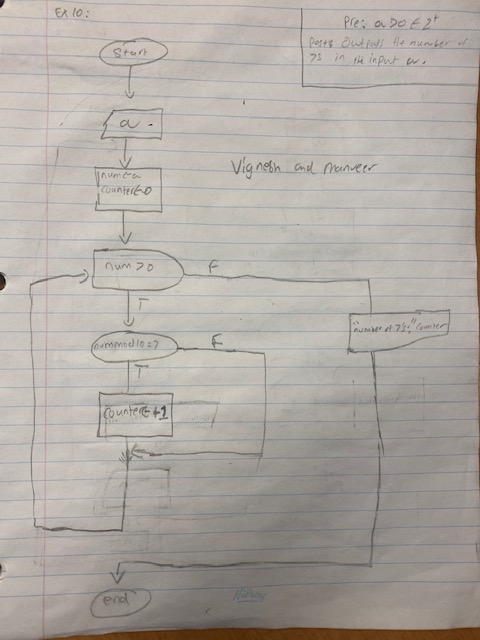 Ex 10:
Pre: a>0 ∈ Z⁺
Post: Outputs the number of
7s in the input a.
Start
a
Vignesh and Manveer
num←a
counter←0
num>0
F
T
"number of 7's:" counter
num mod 10 = 7
F
T
counter←+1
end
Hilroy